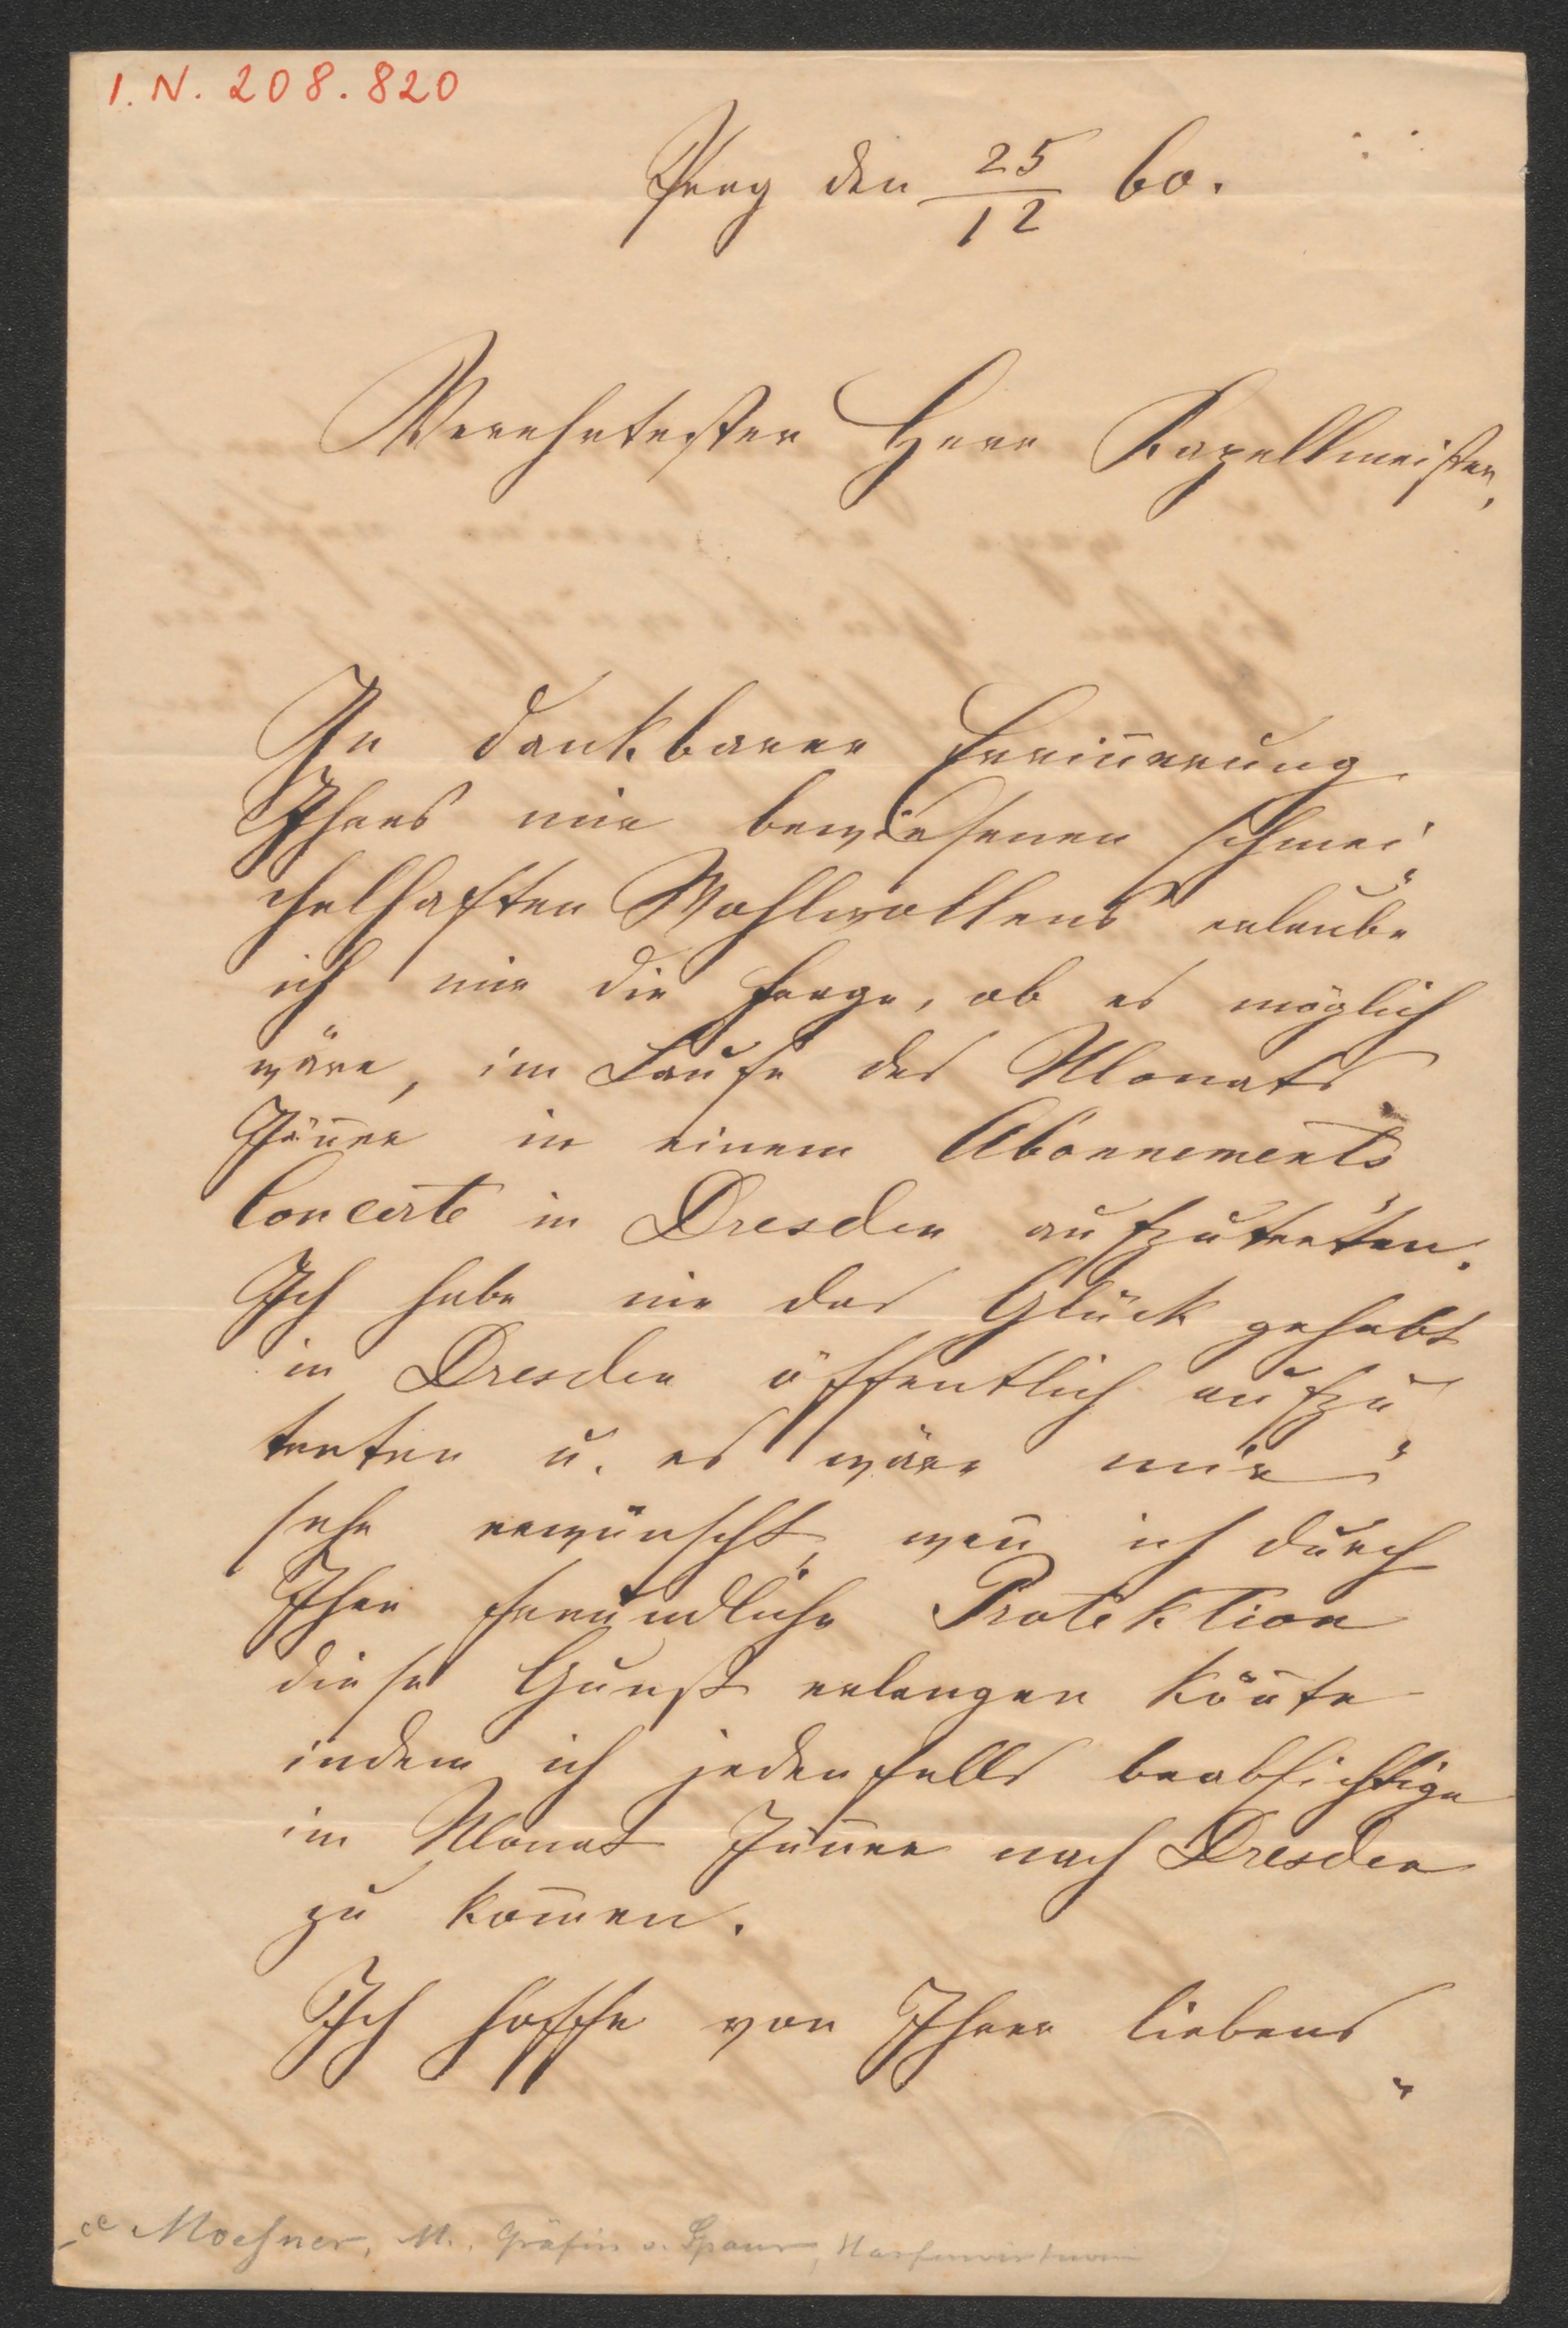 I. N. 208.820
Prag den 25/12 60.
Verehrtester Herr Kapellmeister,
In dankbarer Erinnerung
Ihres mir bewiesenen schmei
chelhaften Wohlwollens erlaube
ich mir die Frage, ob es möglich
wäre, im Laufe des Monats
Jäner in einem Abonnements
Concerte in Dresden aufzutreten.
Ich habe nie das Glück gehabt
in Dresden öffentlich aufzu
treten u. es wäre mir
sehr erwünscht, wen̄ ich durch
Ihre freundliche Protektion
diese Gunst erlangen kön̄te
indem ich jedenfalls beabsichtige
im Monat Jän̄er nach Dresden
zu kom̄en.
Ich hoffe von Ihrer liebens
Moesner, M., Gräfin v. Spaur, Harfenvirtuosin